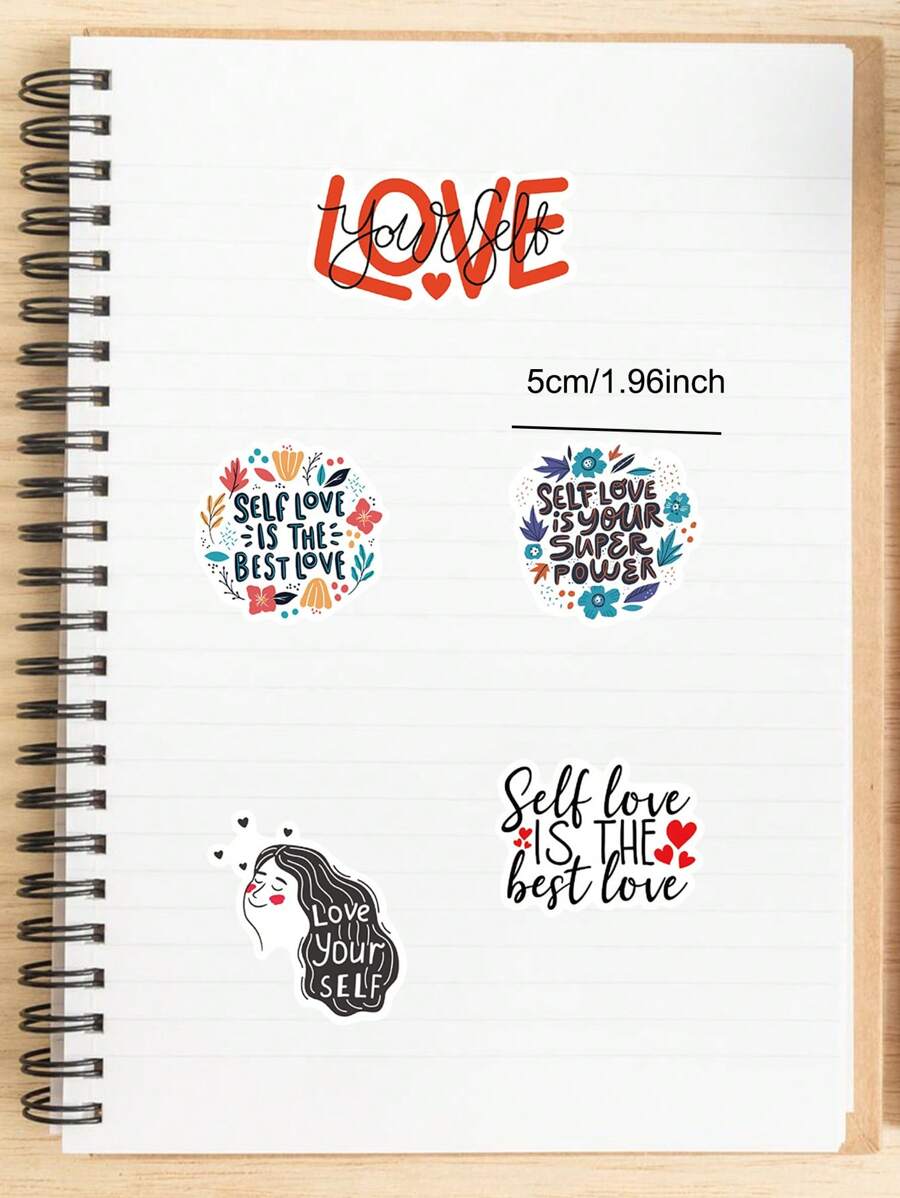 LOVE
Yourself
5cm/1.96inch
SELF LOVE
IS THE
BEST LOVE
SELF LOVE
iS yOUR
SUPER
POWER
Self love
IS THE
best love
LOVE
your
SELF